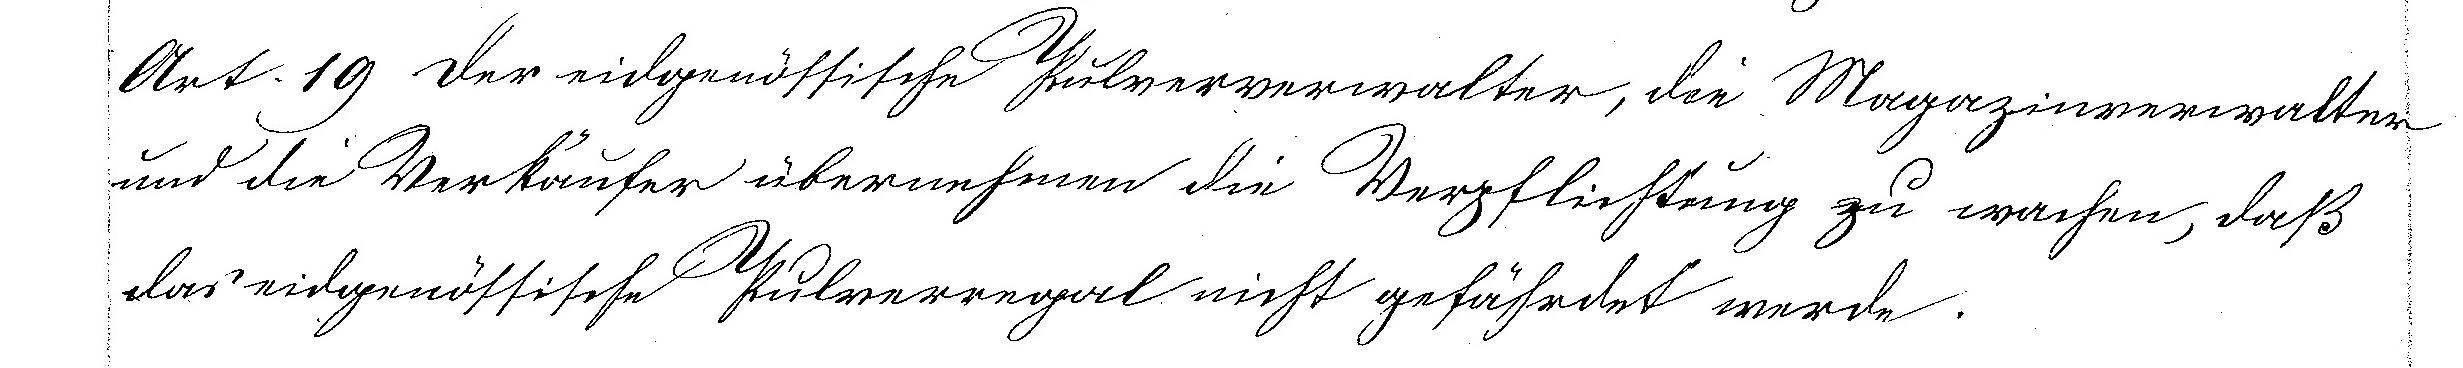 Art. 19 Der eidgenössische Pulververwalter, die Magazinverwalter
und die Verkäufer übernehmen die Verpflichtung zu wachen, daß
das eidgenössische Pulverregal nicht gefährdet werde.